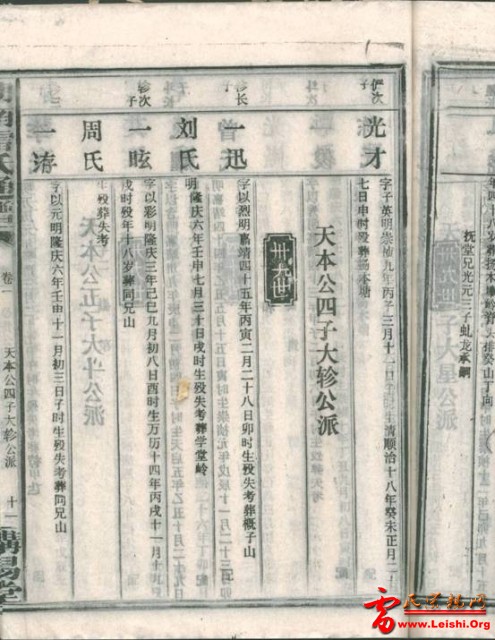 抚堂兄光元三子虬龙承嗣
俨次子
光才
字子英明崇祯九年丙子三月十一日
生清顺治十八年癸未正月二
七日申时殁葬杨木塘
天本公四子大轸公派
卅九世
轸长子
一迅
字以烈明嘉靖四十五年丙寅二月二十八日卯时生殁失考葬概子山
刘氏
明隆庆六年壬申七月三十日戌时生殁失考葬学堂岭
轸次子
一昡
字以彩明隆庆三年己巳九月初八日酉时生万历十四年丙戌十一月十九
戌时殁年十八岁葬同兄山
周氏
生殁葬失考
一洊
字以元明隆庆六年壬申十一月初三日子时生殁失考葬同兄山
卷一
天本公四子大轸公派
十一
雷氏宗亲网
www.Leishi.Org